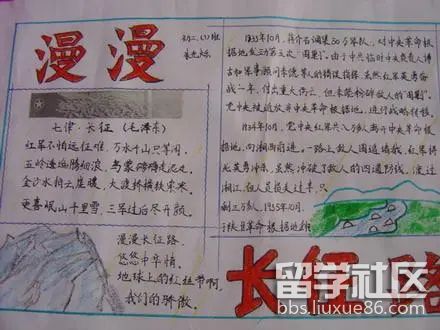 漫漫
初二、(1)班
七律·长征 (毛泽东)
红军不怕远征难,万水千山只等闲。
五岭逶迤腾细浪,乌蒙磅礴走泥丸。
金沙水拍云崖暖,大渡桥横铁索寒。
更喜岷山千里雪,三军过后尽开颜。
漫漫长征路,
悠悠中华情。
地球上的红丝带啊,
我们的骄傲。
1933年10月,蒋介石调集50万军队,对中央革命根
据地发动第五次"围剿"。由于中共临时中央负责人博
古和军事顾问李德等人的错误指挥,虽然红军英勇奋
战一年,付出重大伤亡,但未能粉碎敌人的"围剿"。
党中央被迫放弃中央革命根据地,进行战略转移。
1934年10月,党中央红军共八万余人离开中央革命根据
地,向湘西前进。一路上敌人围追堵截,红军将
士英勇冲杀,虽然冲破了敌人的四道防线,渡过
湘江,但人员损失过半,只
剩三万多人,1935年10月
了陕甘革命根据地
长征路
留学社区
bbs.liuxue86.com